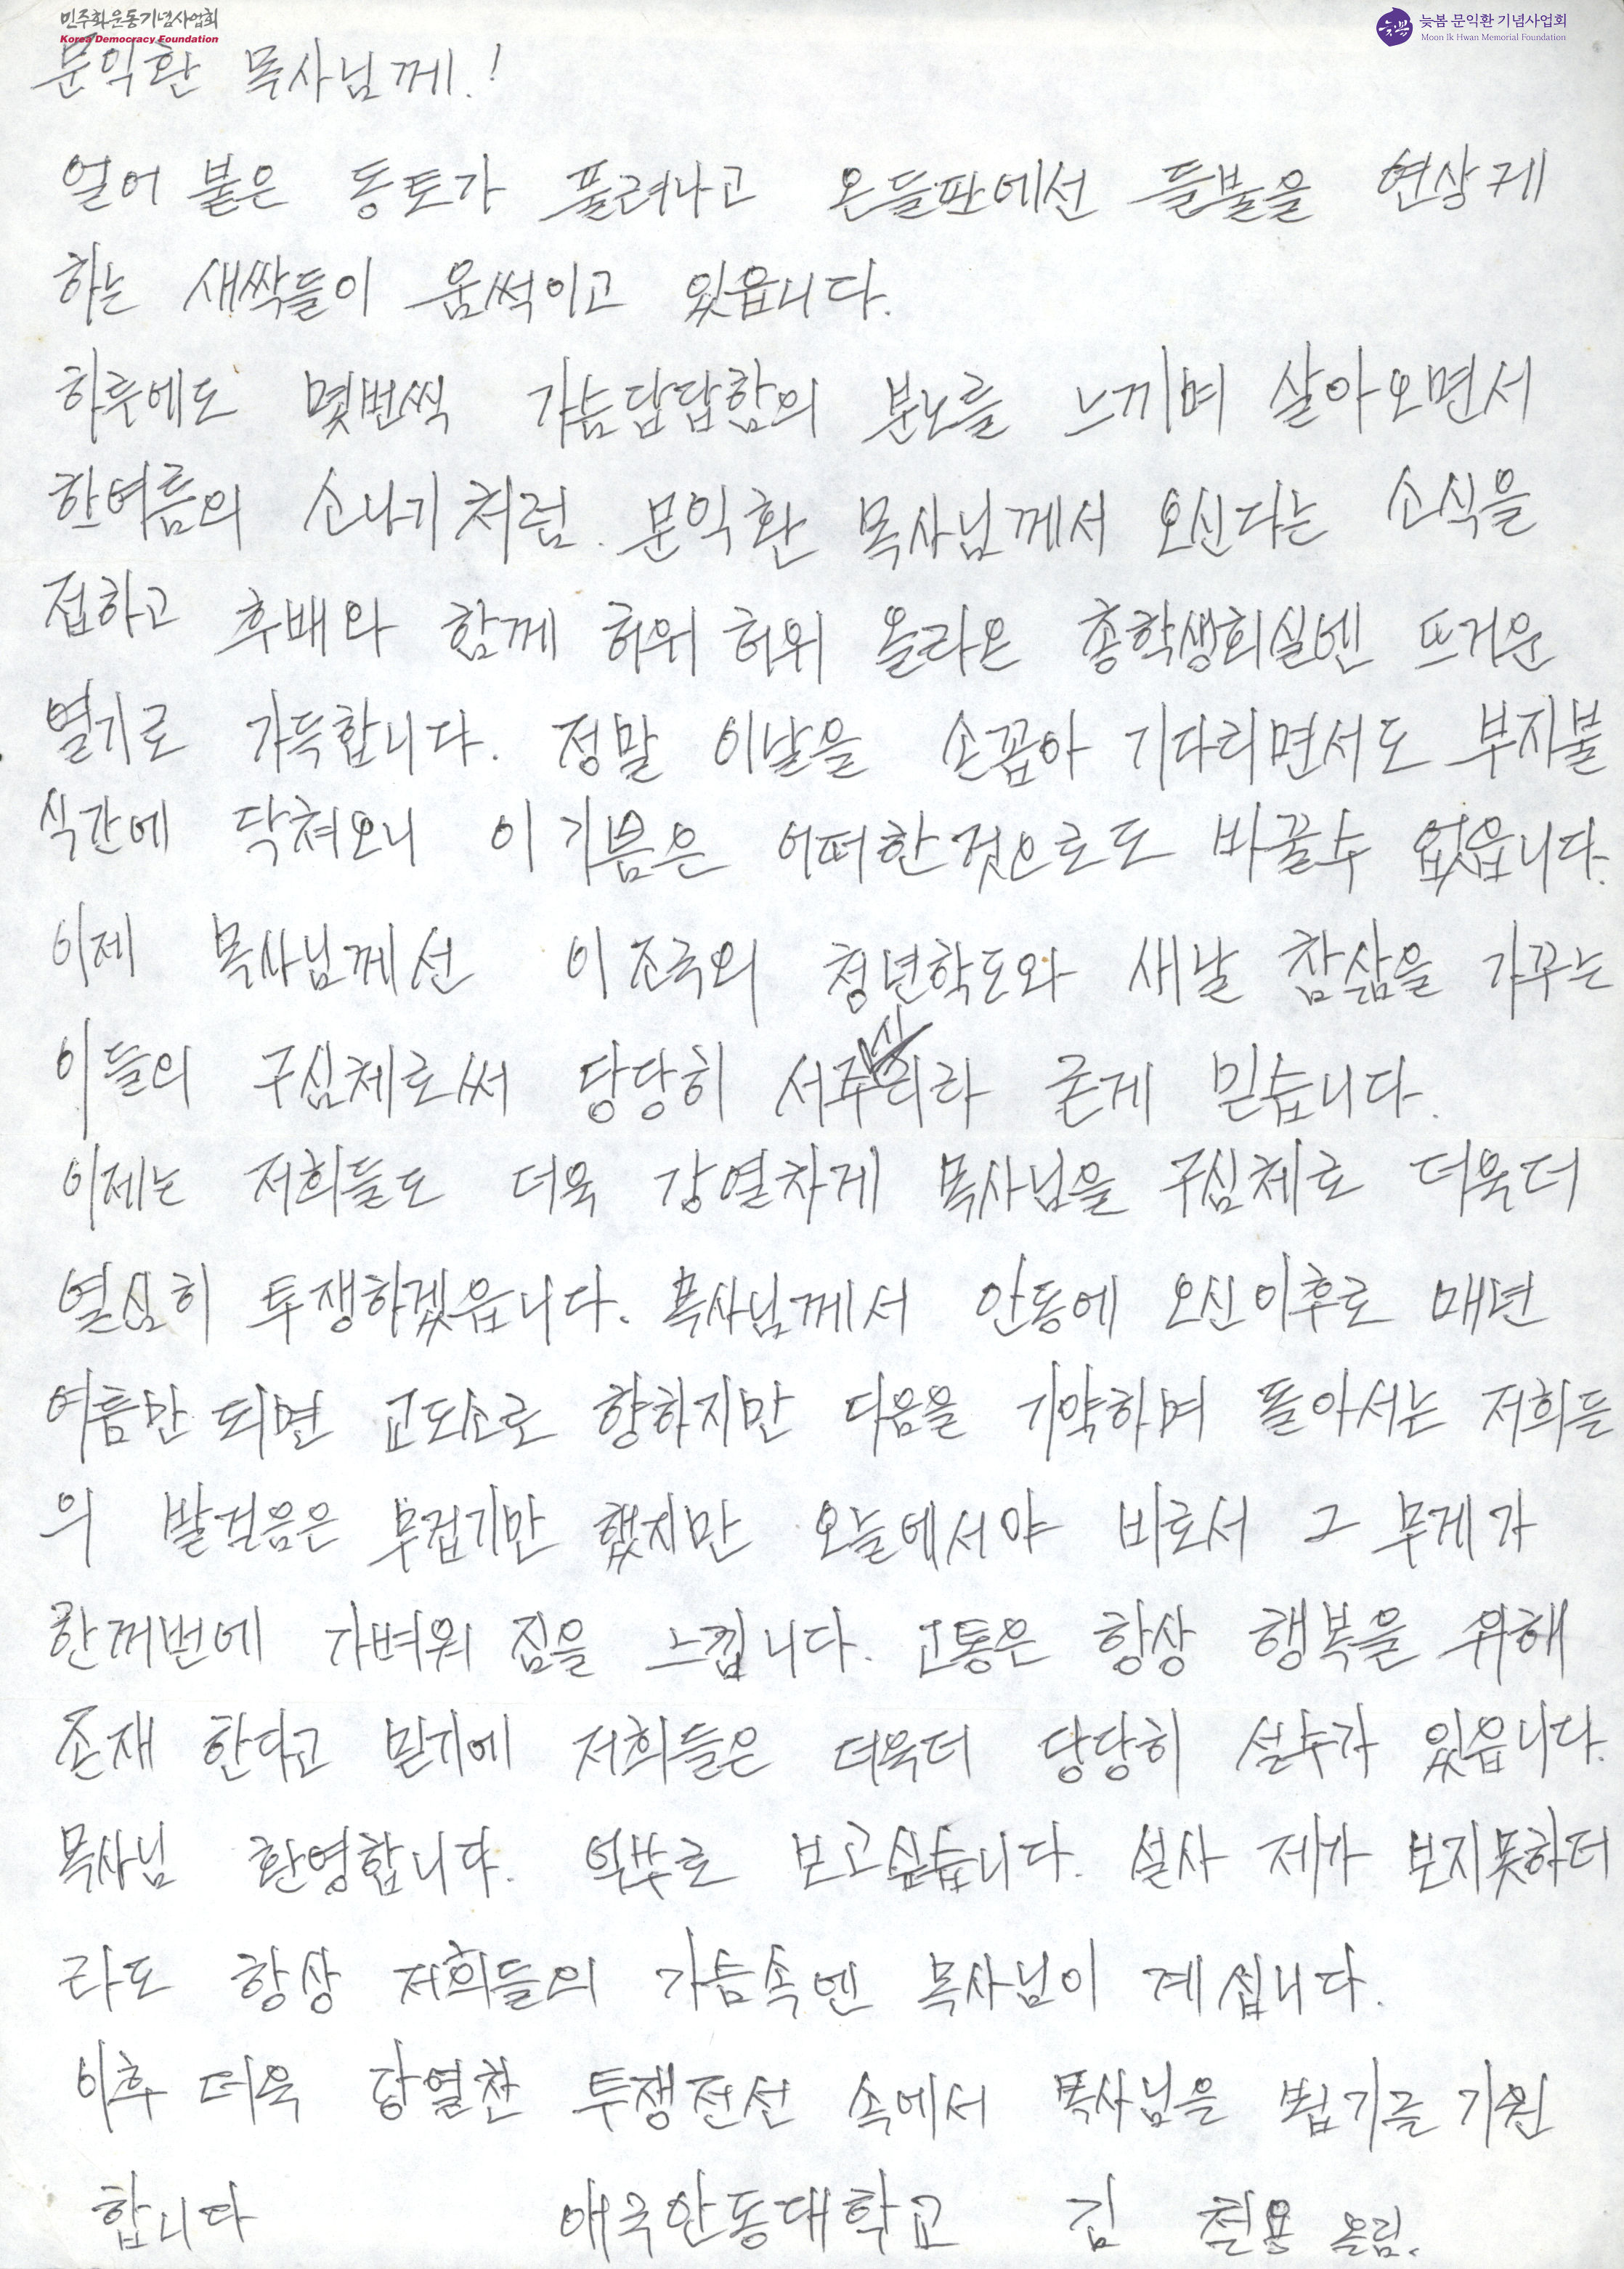 민주화운동기념사업회
Korea Democracy Foundation
늦봄 문익환 기념사업회
Moon Ik Hwan Memorial Foundation
문익환 목사님께!
얼어 붙은 동토가 풀려나고 온들판에선 들불을 연상케
하는 새싹들이 움썩이고 있읍니다.
하루에도 몇번씩 가슴답답함의 분노를 느끼며 살아오면서
한여름의 소나기처럼. 문익환 목사님께서 오신다는 소식을
접하고 후배와 함께 허위 허위 올라온 총학생회실엔 뜨거운
열기로 가득합니다. 정말 이날을 손꼽아 기다리면서도 부지불
식간에 닥쳐오니 이 기쁨은 어떠한것으로도 바꿀수 없읍니다.
이제 목사님께선 이 조국의 청년학도와 새날 참삶을 가꾸는
이들의 구심체로써 당당히 서주시리라 굳게 믿습니다.
이제는 저희들도 더욱 강열차게 목사님을 구심체로 더욱더
열심히 투쟁하겠읍니다. 목사님께서 안동에 오신이후로 매년
여름만 되면 교도소로 향하지만 다음을 기약하며 돌아서는 저희들
의 발걸음은 무겁기만 했지만 오늘에서야 비로서 그 무게가
한꺼번에 가벼워 짐을 느낍니다. 고통은 항상 행복을 위해
존재 한다고 믿기에 저희들은 더욱더 당당히 설수가 있읍니다.
목사님 환영합니다. 억쑤로 보고싶습니다. 설사 제가 보지못하더
라도 항상 저희들의 가슴속엔 목사님이 계십니다.
이후 더욱 강열찬 투쟁전선 속에서 목사님을 뵙기를 기원
합니다 애국안동대학교 김 철용 올림.